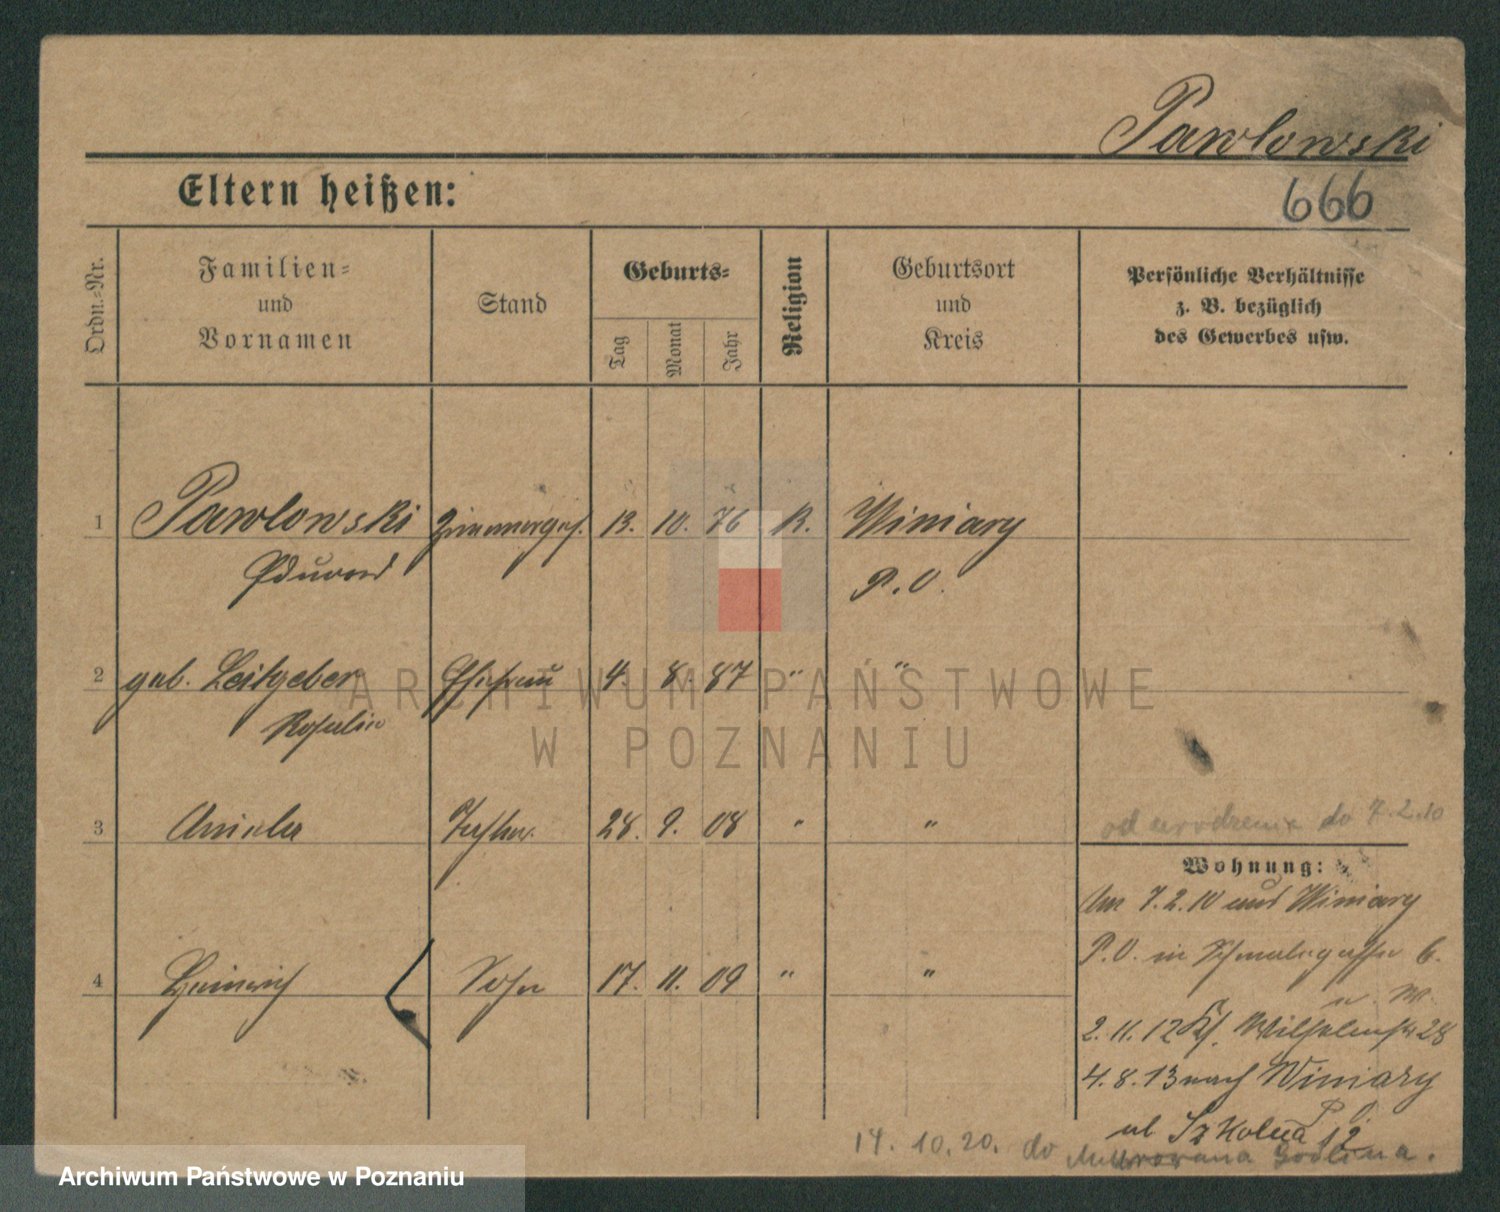 Pawlowski
Eltern heißen:
666
Ordn.-Nr.
Familien-
und
Vornamen
Stand
Geburts-
Tag
Monat
Jahr
Religion
Geburtsort
und
Kreis
Persönliche Verhältnisse
z. B. bezüglich
des Gewerbes usw.
1 Pawlowski Zimmerges. 13. 10. 76 K. Winiary
Eduard P. O.
2 geb. Leitgeber Ehefrau 4. 8. 87 " "
Rosalie
3 Aniela Tochter 28. 9. 08 " "
od urodzenia do 7.2.10
Wohnung:
Am 7.2.10 aus Winiary
P.O. in Schmalegasse 6.
4 Heinrich Sohn 17. 11. 09 " "
n. W.
2.11.12 Wilhelmstr 28
4.8.13 nach Winiary
P. O.
ul Szkolna 12
14. 10. 20. do Murowana Goślina.
ARCHIWUM PAŃSTWOWE
W POZNANIU
Archiwum Państwowe w Poznaniu